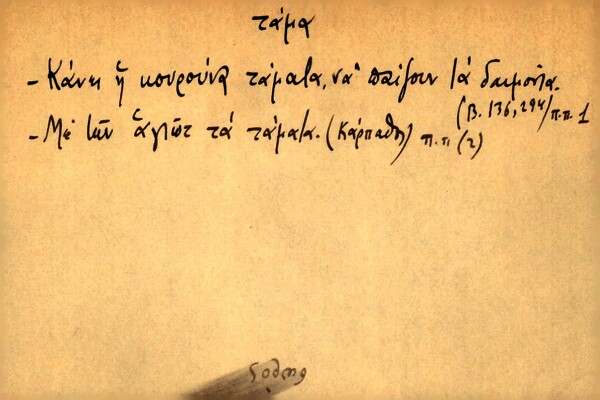 τάμα
- Κάνει ἡ κουρούνα τάματα, νὰ παίξουν τὰ δαιμόνια.
(Β. 136, 294) π.π. 1
- Μὲ τῶν ἁγίων τὰ τάματα. (Κάρπαθος) π.π. (2)